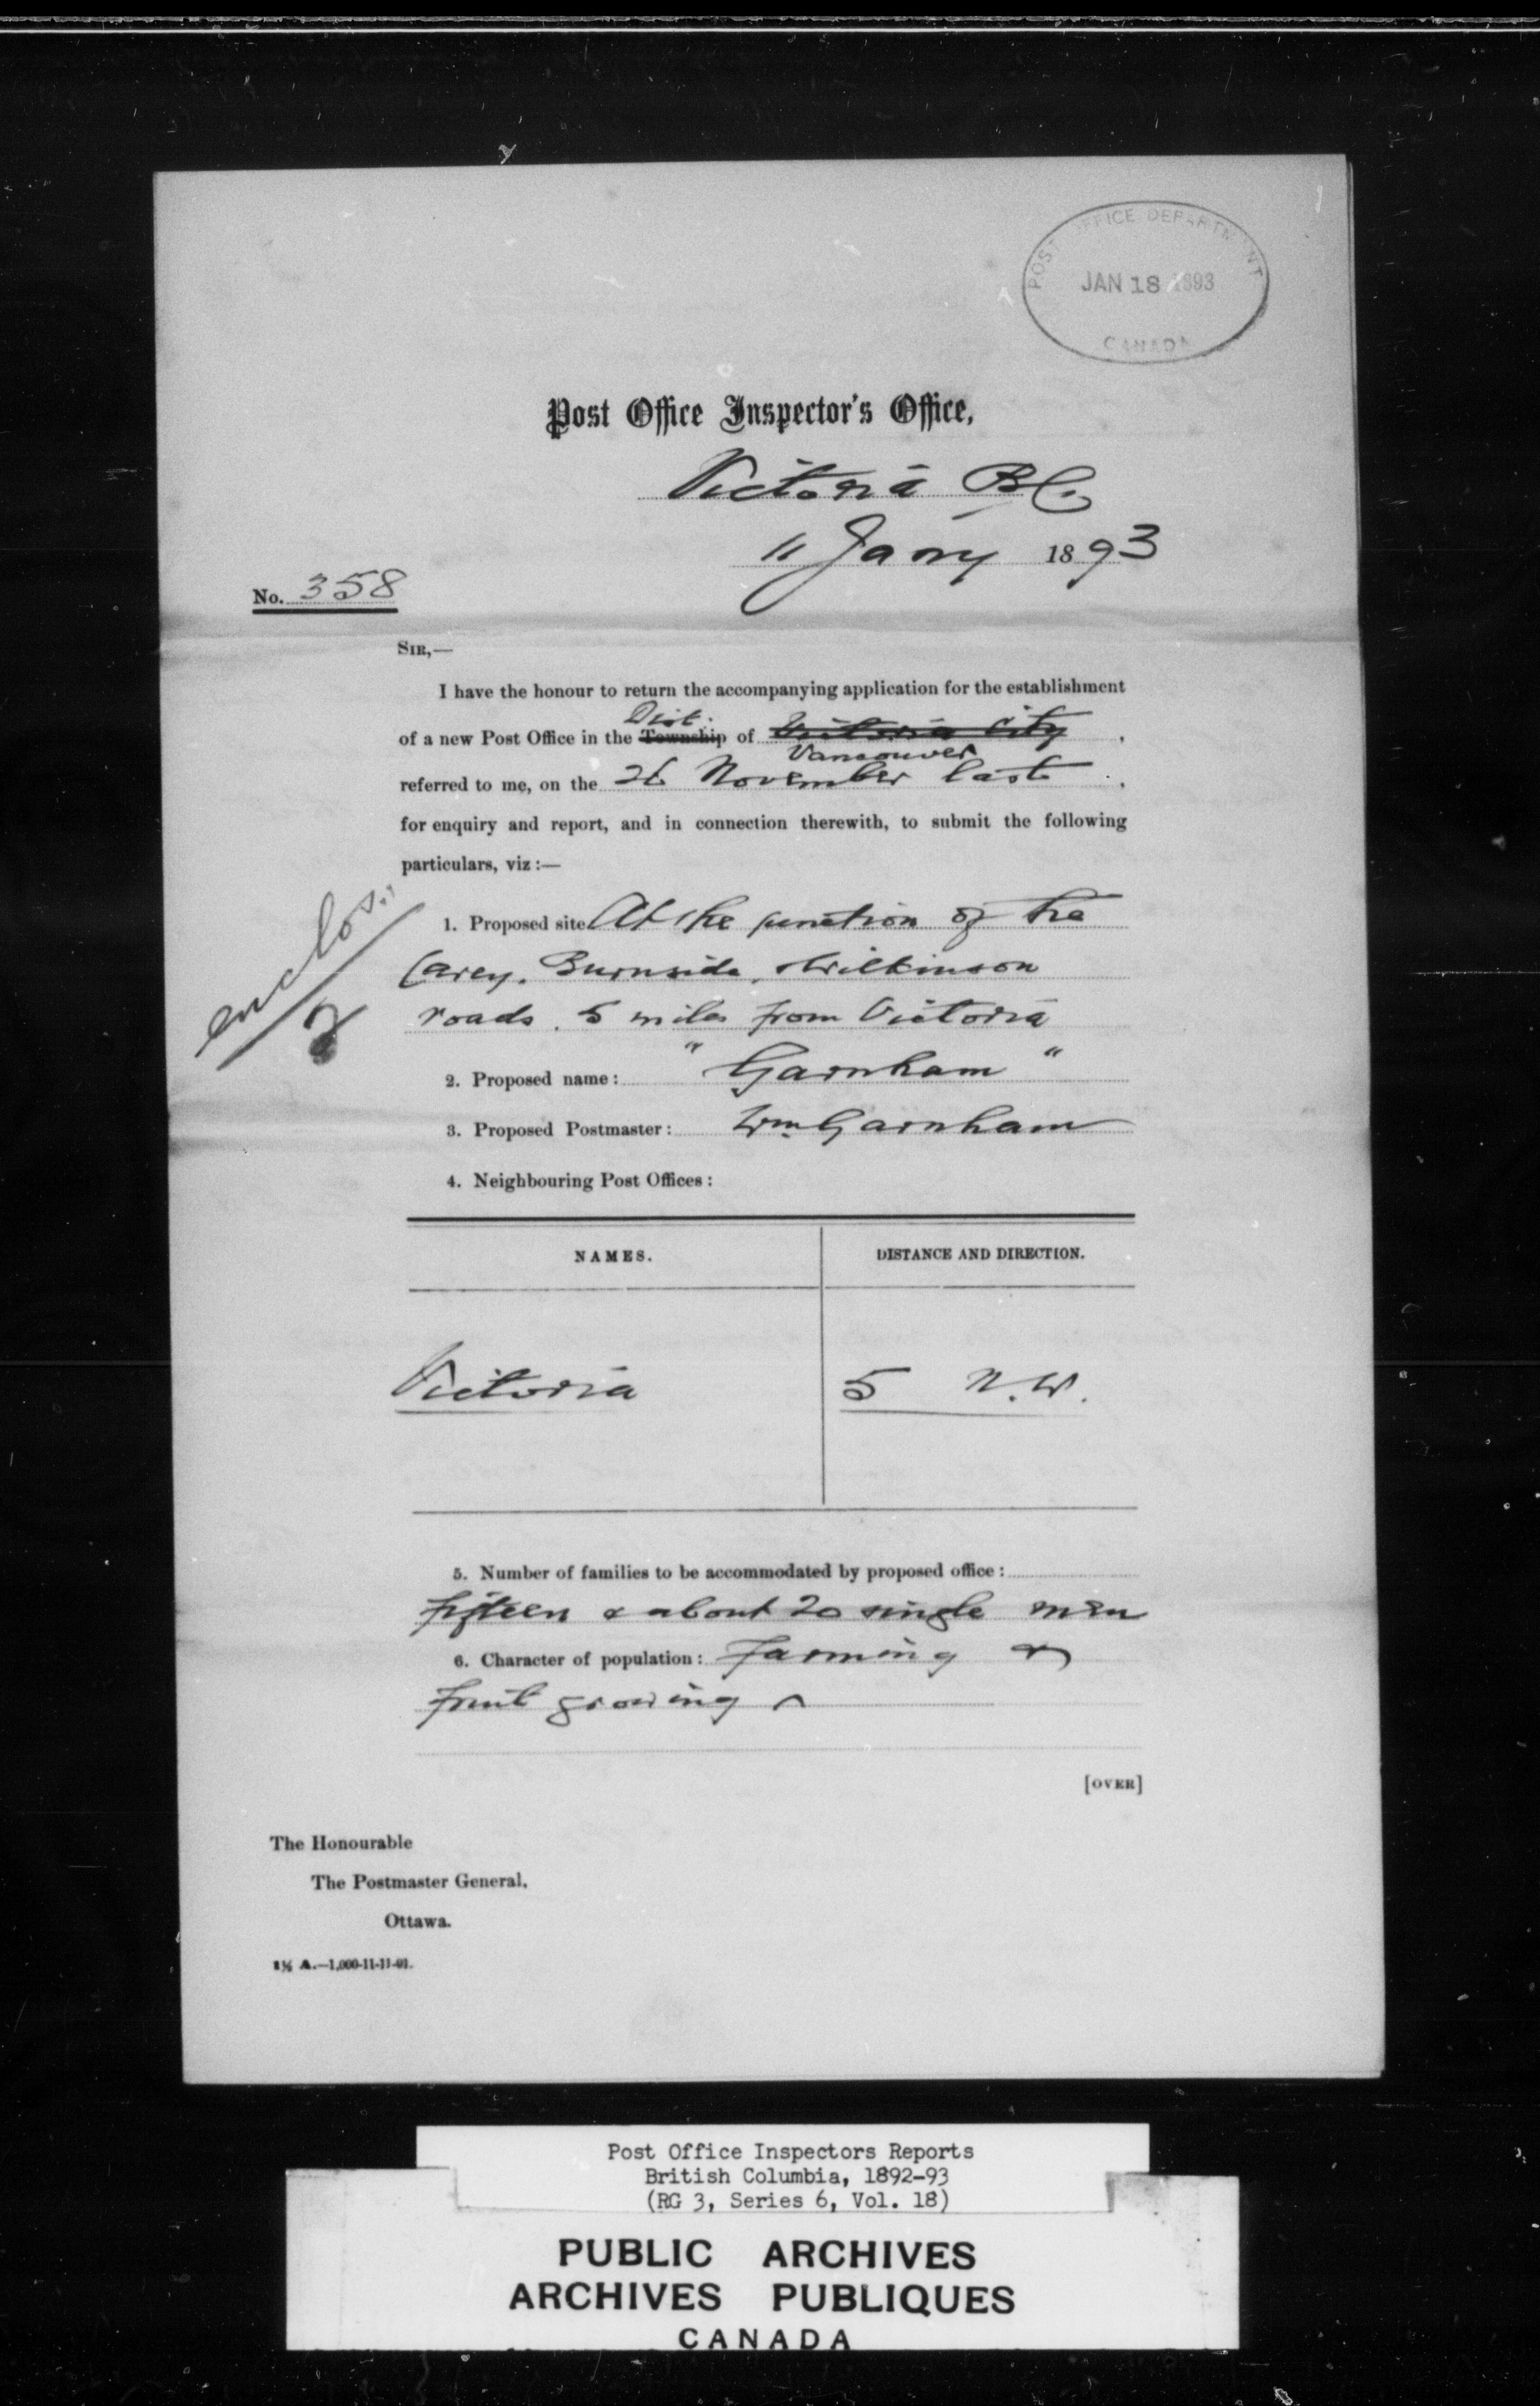 POST OFFICE DEPARTMENT
JAN 18 1893
CANADA
Post Office Inspector's Office,
Victoria BC
11 Jany 1893
No. 358
SIR,—
I have the honour to return the accompanying application for the establishment
Dist.
of a new Post Office in the Township of Victoria City,
Vancouver
referred to me, on the 26 November last,
for enquiry and report, and in connection therewith, to submit the following
particulars, viz :—
enclos.
1. Proposed site At the junction of the
Carey, Burnside, Wilkinson
roads. 5 miles from Victoria
2. Proposed name: "Garnham"
3. Proposed Postmaster: Wm. Garnham
4. Neighbouring Post Offices:
NAMES. DISTANCE AND DIRECTION.
Victoria 5 N.W.
5. Number of families to be accommodated by proposed office:
fifteen & about 20 single men
6. Character of population: Farming &
fruit growing
[OVER]
The Honourable
The Postmaster General,
Ottawa.
A.—1,000-11-11-91.
Post Office Inspectors Reports
British Columbia, 1892-93
(RG 3, Series 6, Vol. 18)
PUBLIC ARCHIVES
ARCHIVES PUBLIQUES
CANADA